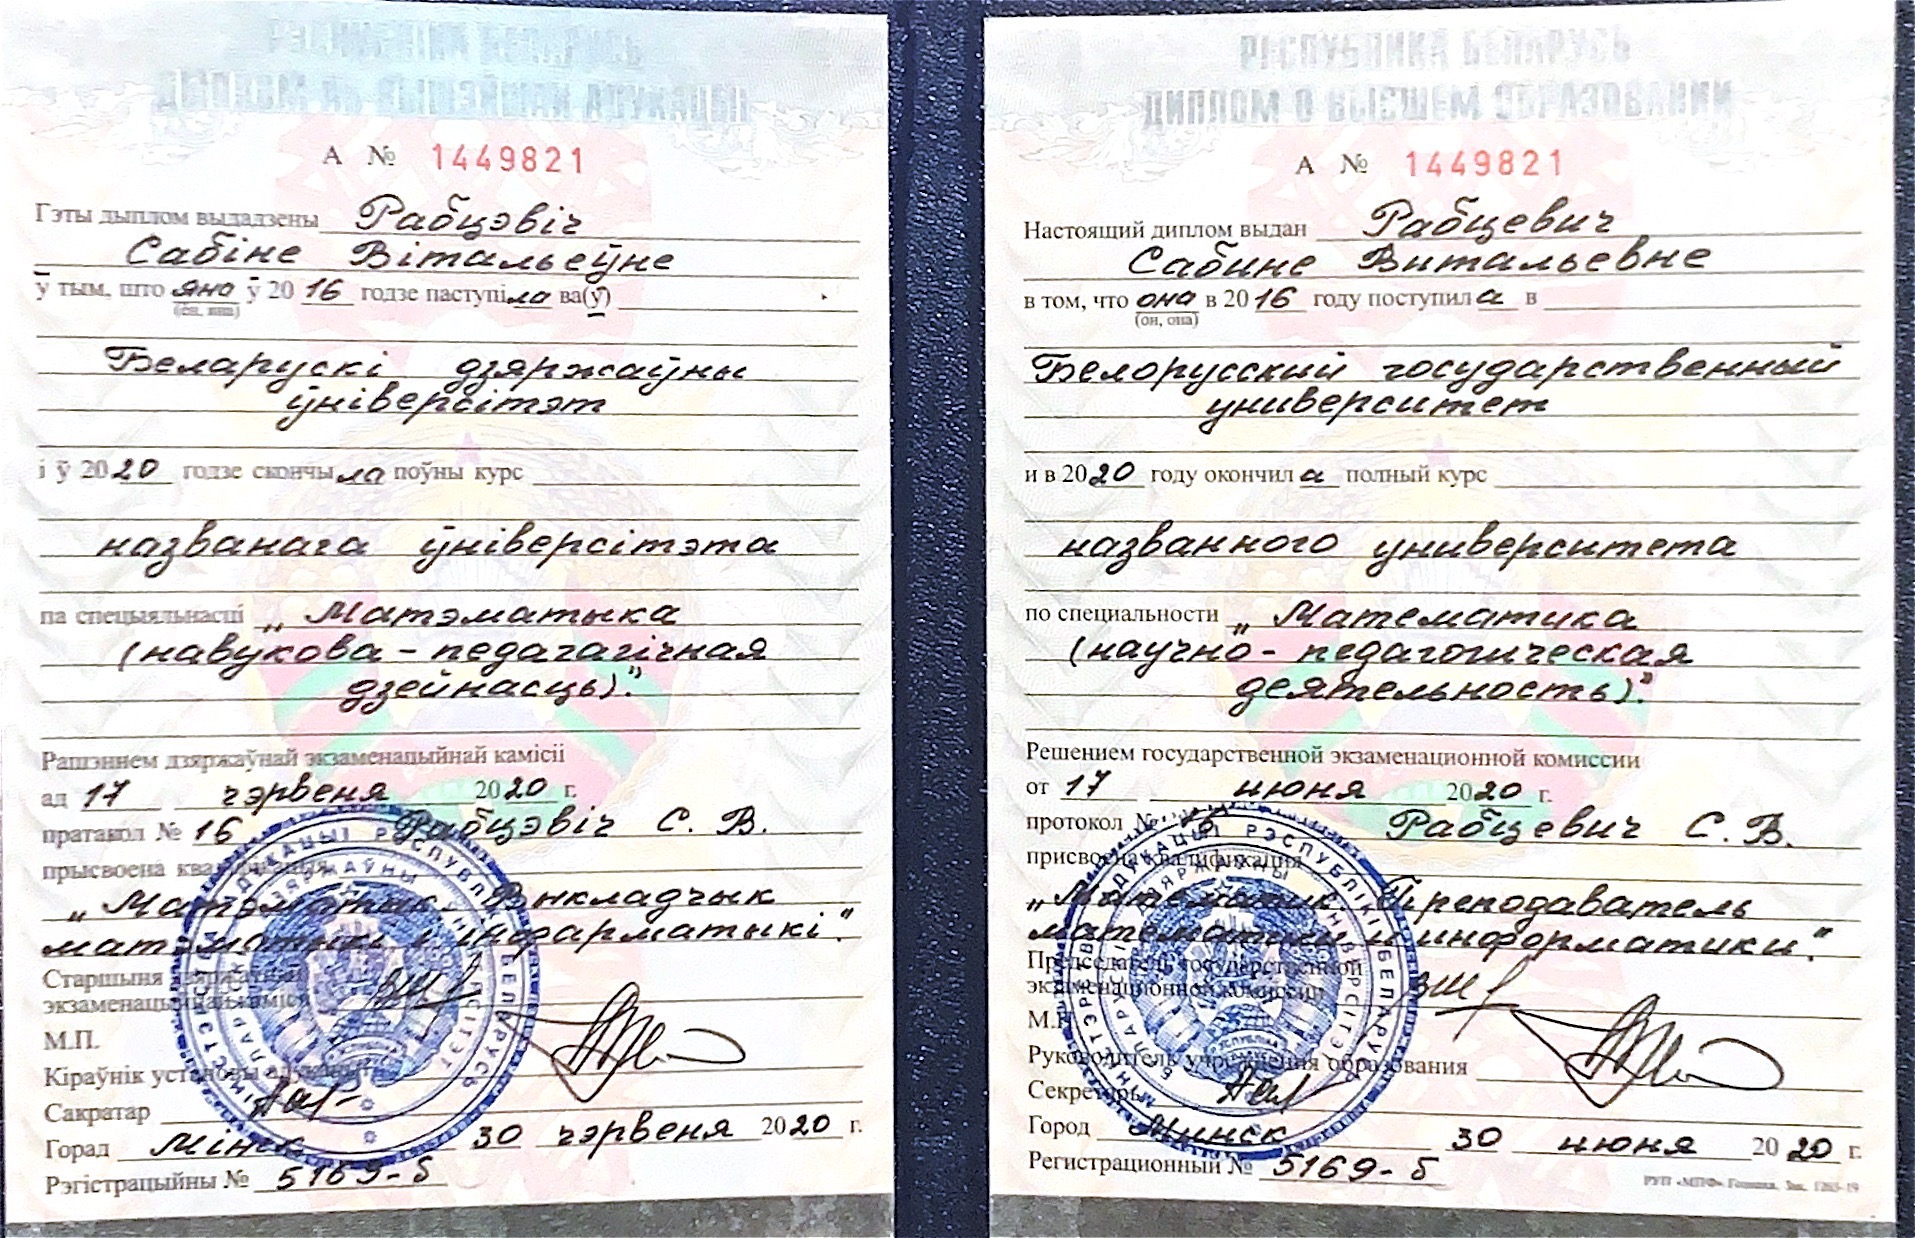 РЭСПУБЛІКА БЕЛАРУСЬ
ДЫПЛОМ АБ ВЫШЭЙШАЙ АДУКАЦЫІ
А № 1449821
Гэты дыплом выдадзены Рабцэвіч
Сабіне Вітальеўне
ў тым, што яна ў 2016 годзе паступіла ва(ў)
(ён, яна)
Беларускі дзяржаўны
ўніверсітэт
і ў 2020 годзе скончыла поўны курс
названага ўніверсітэта
па спецыяльнасці „Матэматыка
(навукова-педагагічная
дзейнасць)."
Рашэннем дзяржаўнай экзаменацыйнай камісіі
ад 17 чэрвеня 2020 г.
пратакол № 16 Рабцэвіч С. В.
прысвоена кваліфікацыя
„Матэматык. Выкладчык
матэматыкі і інфарматыкі."
Старшыня дзяржаўнай
экзаменацыйнай камісіі
М.П.
Кіраўнік установы адукацыі
Сакратар
Горад Мінск 30 чэрвеня 2020 г.
Рэгістрацыйны № 5169-б
РЕСПУБЛИКА БЕЛАРУСЬ
ДИПЛОМ О ВЫСШЕМ ОБРАЗОВАНИИ
А № 1449821
Настоящий диплом выдан Рабцевич
Сабине Витальевне
в том, что она в 2016 году поступила в
(он, она)
Белорусский государственный
университет
и в 2020 году окончила полный курс
названного университета
по специальности „Математика
(научно-педагогическая
деятельность)."
Решением государственной экзаменационной комиссии
от 17 июня 2020 г.
протокол № 16 Рабцевич С. В.
присвоена квалификация
„Математик. Преподаватель
математики и информатики."
Председатель государственной
экзаменационной комиссии
М.П.
Руководитель учреждения образования
Секретарь
Город Минск 30 июня 2020 г.
Регистрационный № 5169-б
РУП «МПФ» Гознака. Зак. 1263-19